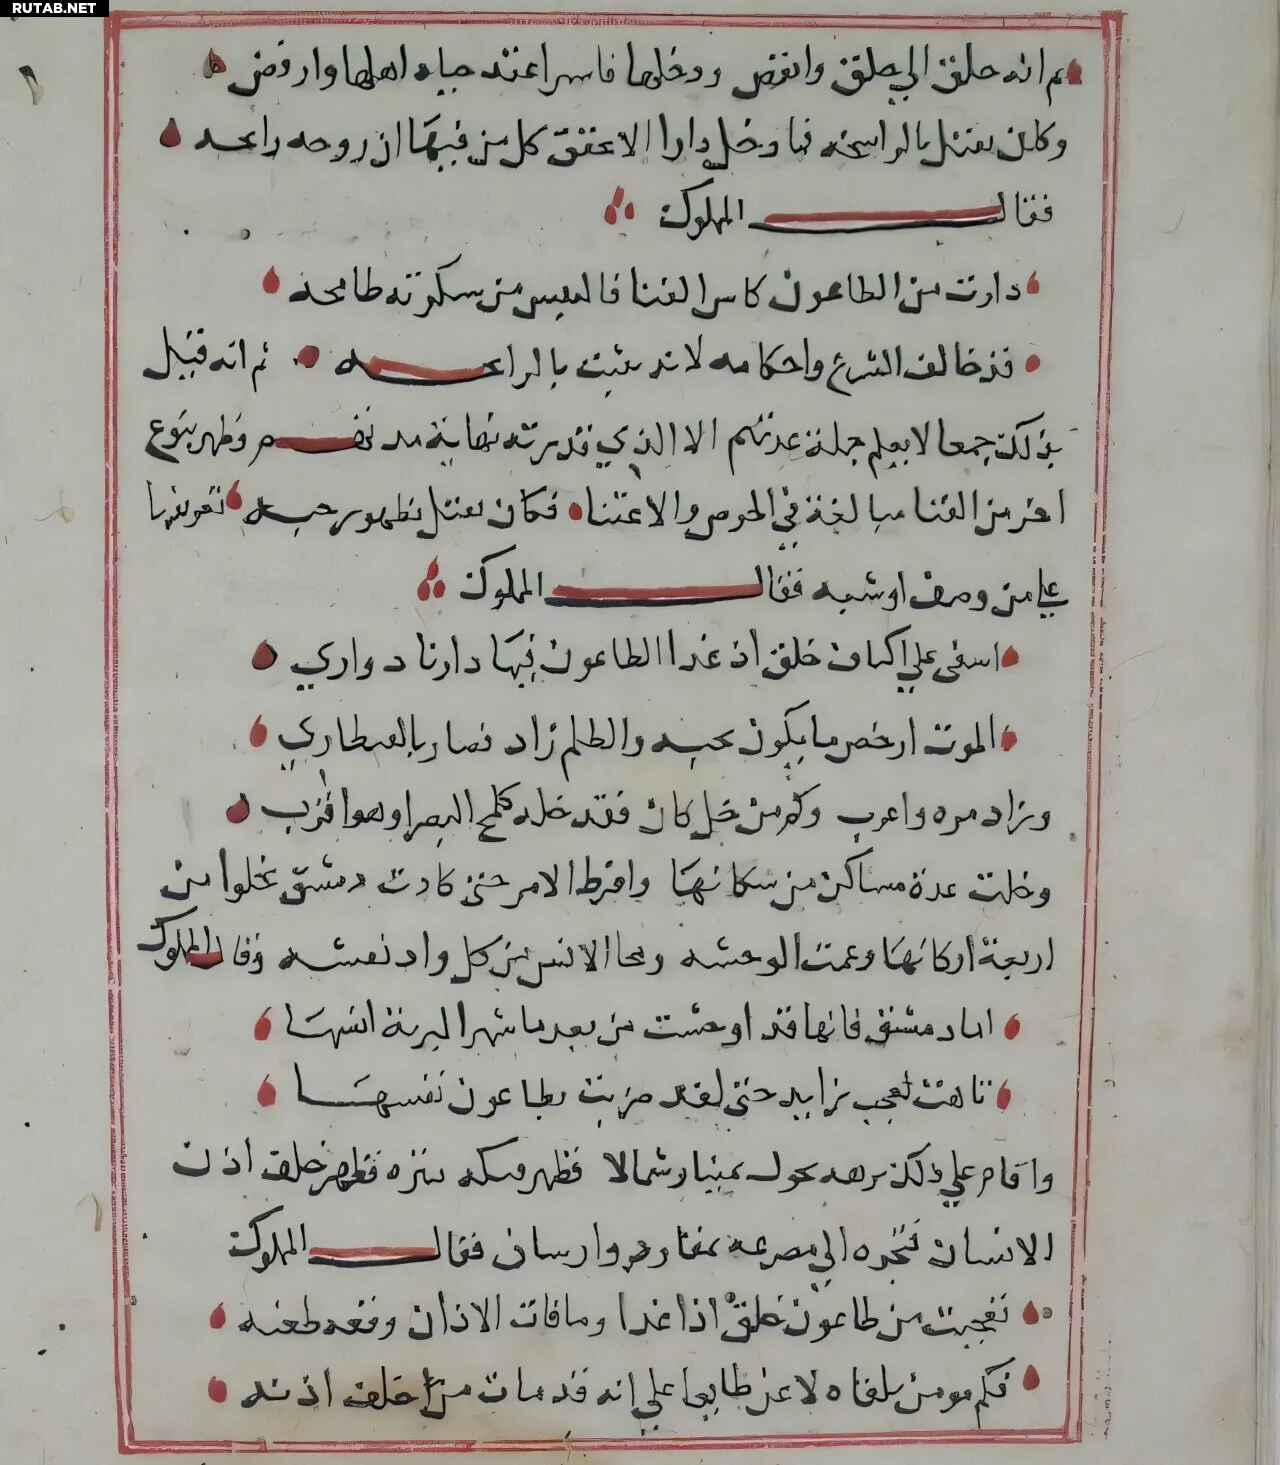 RUTAB.NET
ثم انه حلق الي جلق وانقض ودخلها فاسرا عنده جباه اهلها وارفض
وكان يقتل بالرايحه فما دخل دارا الا عتق كل من فيها ان روحه رايحه
فقال المملوك
دارت من الطاعون كاس الفنا فالنفس من سكرته طافحه
قد خالف الشرع واحكامه لانه يثبت بالرايحه ثم انه قتل
بذلك جمعا لا يعلم جملة عدتهم الا الذي قدرته نهاية مددهم وظهر بنوع
اخر من الفنا مبالغة في الحرص والاعتنا فكان يقتل بظهور حبه تعويضا
علي من وصف او شبه فقال المملوك
اسفي علي اكناف خلق اذ غدا الطاعون فيها دارنا دواري
الموت ارخص ما يكون بحبه والظلم زاد فصار بالقنطاري
وزاد مره واعرب وكم من خل كان فقد خله كلمح البصر او هو اقرب
وخلت عدة مساكن من سكانها وافرط الامر حتي كادت دمشق تخلوا من
اربعة اركانها وعمت الوحشه ومحا الانس من كل واد نعشه وقال المملوك
اما دمشق فانها قد اوحشت من بعد ما شهر البرية انسها
تاهت تعجب زايد حتي لقد ضربت بطاعون نفسها
واقام علي ذلك برهه يحول يمينا وشمالا فظهر فظهر خلف اذن
الانسان فتجره الي مصرعه بمقاود وارسان فقال المملوك
تعجبت من طاعون خلق اذا غدا وما فاتت الاذان وقعه طعنه
فكم مومن يلقاه لا عن طايعا علي انه قد مات من خلف اذنه